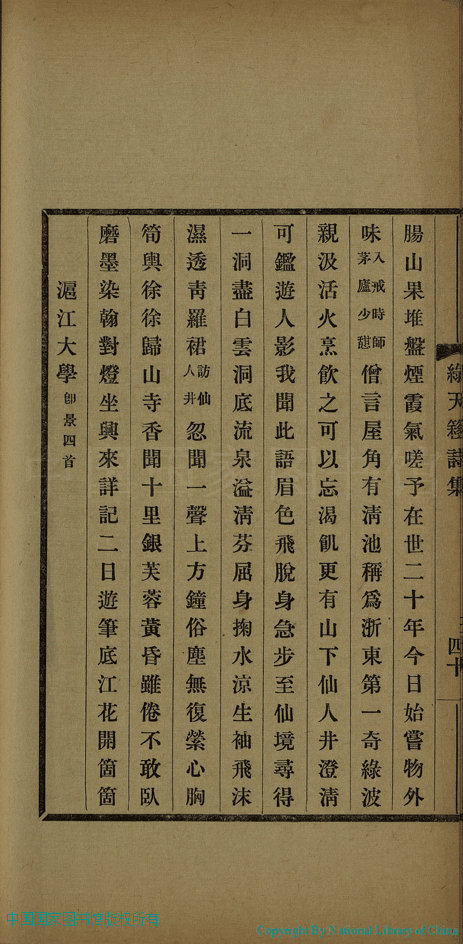 綠天簃詩集
四十
腸山果堆盤煙霞氣嗟予在世二十年今日始嘗物外
味入戒時師茅廬少甛僧言屋角有淸池稱爲浙東第一奇綠波
親汲活火烹飮之可以忘渴飢更有山下仙人井澄淸
可鑑遊人影我聞此語眉色飛脫身急步至仙境尋得
一洞盡白雲洞底流泉溢淸芬屈身掬水涼生袖飛沫
濕透靑羅裙訪仙人井忽聞一聲上方鐘俗塵無復縈心胸
筍輿徐徐歸山寺香聞十里銀芙蓉黃昏雖倦不敢臥
磨墨染翰對燈坐興來詳記二日遊筆底江花開箇箇
滬江大學卽景四首
Copyright By National Library of China